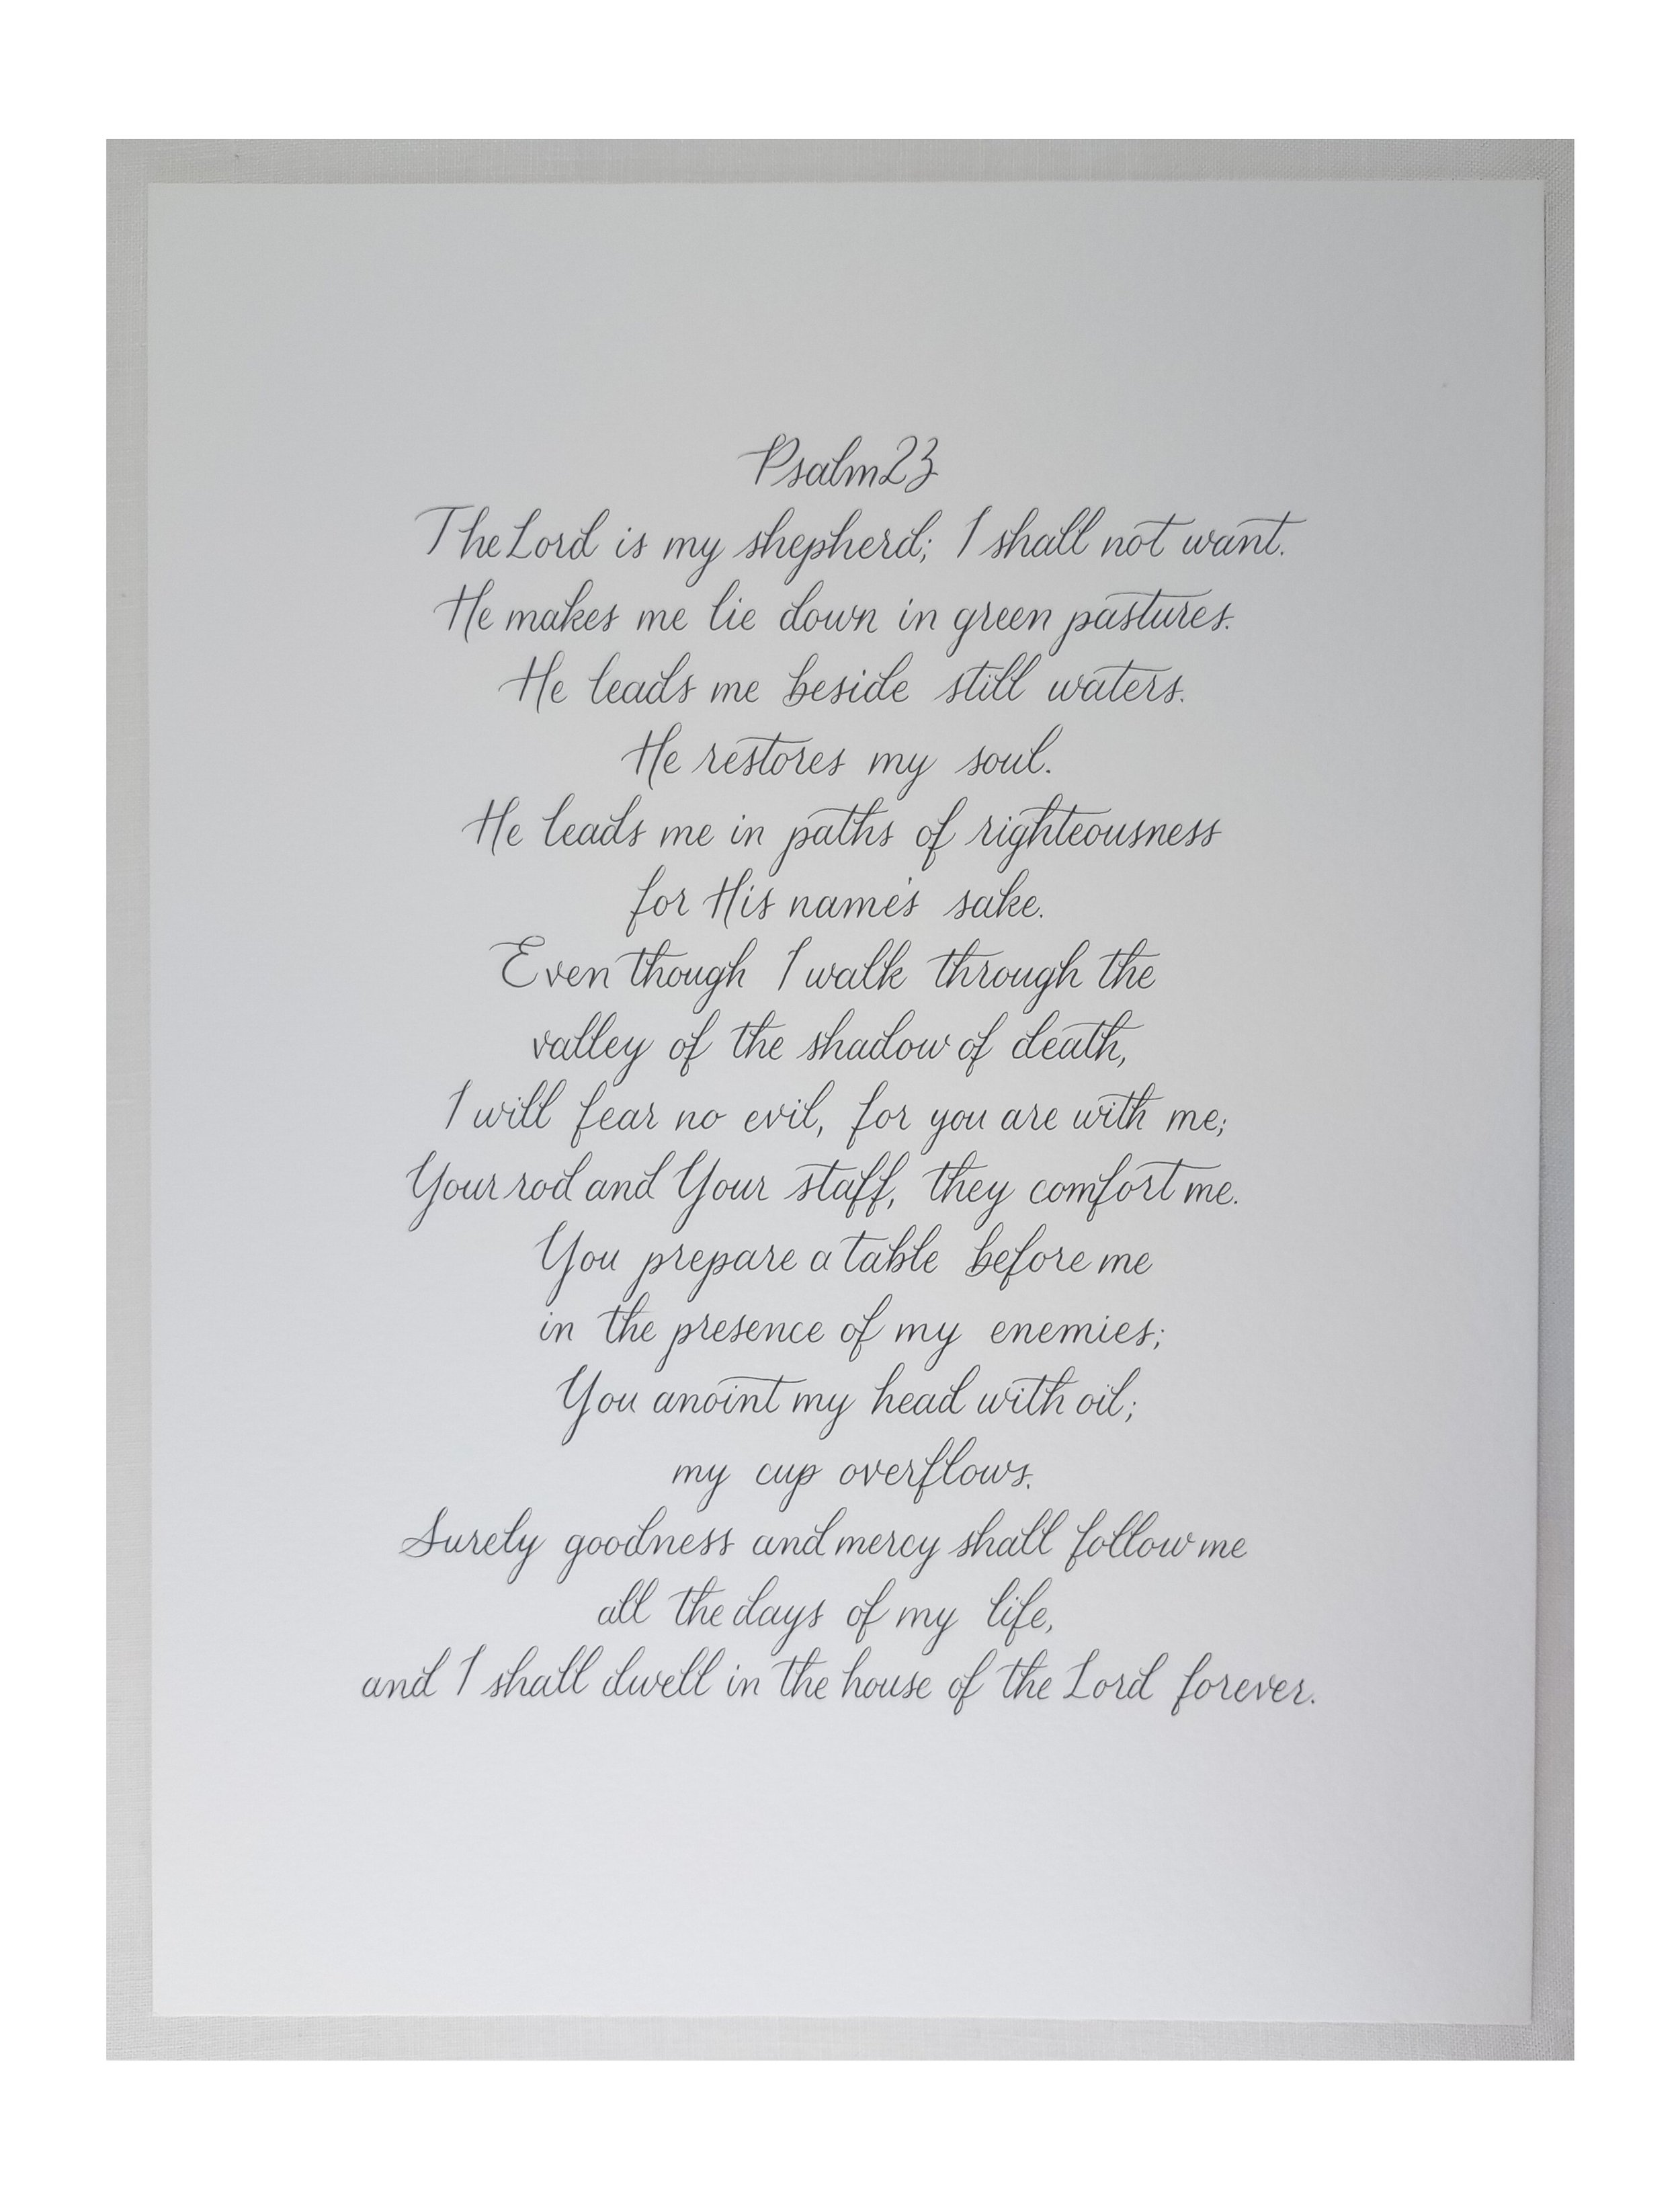 Psalm 23
The Lord is my shepherd; I shall not want.
He makes me lie down in green pastures.
He leads me beside still waters.
He restores my soul.
He leads me in paths of righteousness
for His name's sake.
Even though I walk through the
valley of the shadow of death,
I will fear no evil, for you are with me;
Your rod and Your staff, they comfort me.
You prepare a table before me
in the presence of my enemies;
You anoint my head with oil;
my cup overflows.
Surely goodness and mercy shall follow me
all the days of my life,
and I shall dwell in the house of the Lord forever.